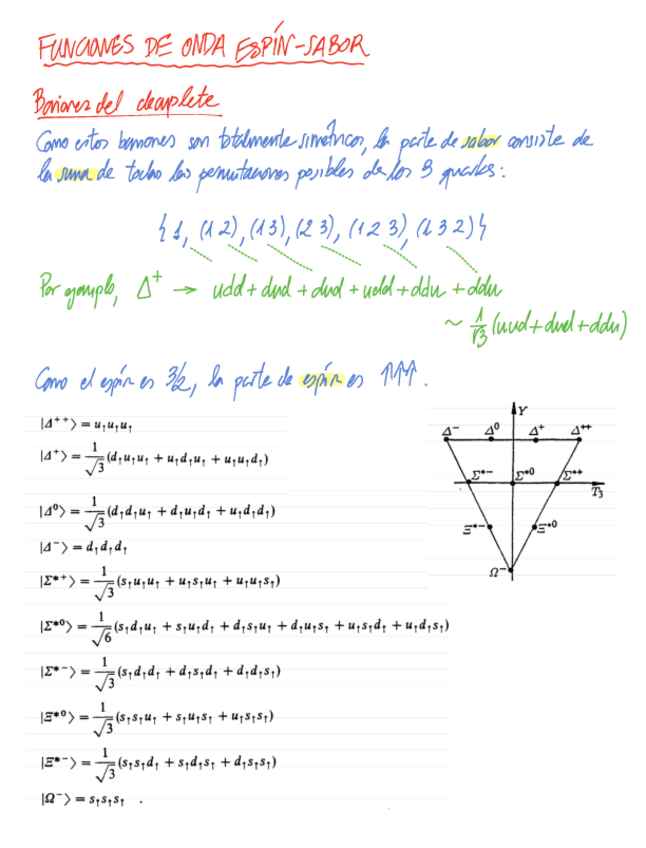 FUNCIONES DE ONDA ESPÍN-SABOR
Bariones del decuplete
Como estos bariones son totalmente simétricos, la parte de sabor consiste de
la suma de todas las permutaciones posibles de los 3 quarks:
{ 1, (1 2), (1 3), (2 3), (1 2 3), (1 3 2) }
Por ejemplo, Δ⁺ → udd + dud + dud + udd + ddu + ddu
~ 1/√3 (uud + dud + ddu)
Como el espín es 3/2, la parte de espín es ↑↑↑.
|Δ⁺⁺⟩ = u↑u↑u↑
|Δ⁺⟩ = 1/√3 (d↑u↑u↑ + u↑d↑u↑ + u↑u↑d↑)
|Δ⁰⟩ = 1/√3 (d↑d↑u↑ + d↑u↑d↑ + u↑d↑d↑)
|Δ⁻⟩ = d↑d↑d↑
|Σ*⁺⟩ = 1/√3 (s↑u↑u↑ + u↑s↑u↑ + u↑u↑s↑)
|Σ*⁰⟩ = 1/√6 (s↑d↑u↑ + s↑u↑d↑ + d↑s↑u↑ + d↑u↑s↑ + u↑s↑d↑ + u↑d↑s↑)
|Σ*⁻⟩ = 1/√3 (s↑d↑d↑ + d↑s↑d↑ + d↑d↑s↑)
|Ξ*⁰⟩ = 1/√3 (s↑s↑u↑ + s↑u↑s↑ + u↑s↑s↑)
|Ξ*⁻⟩ = 1/√3 (s↑s↑d↑ + s↑d↑s↑ + d↑s↑s↑)
|Ω⁻⟩ = s↑s↑s↑ .
Y
Δ⁻ Δ⁰ Δ⁺ Δ⁺⁺
Σ*⁻ Σ*⁰ Σ*⁺
T₃
Ξ*⁻ Ξ*⁰
Ω⁻